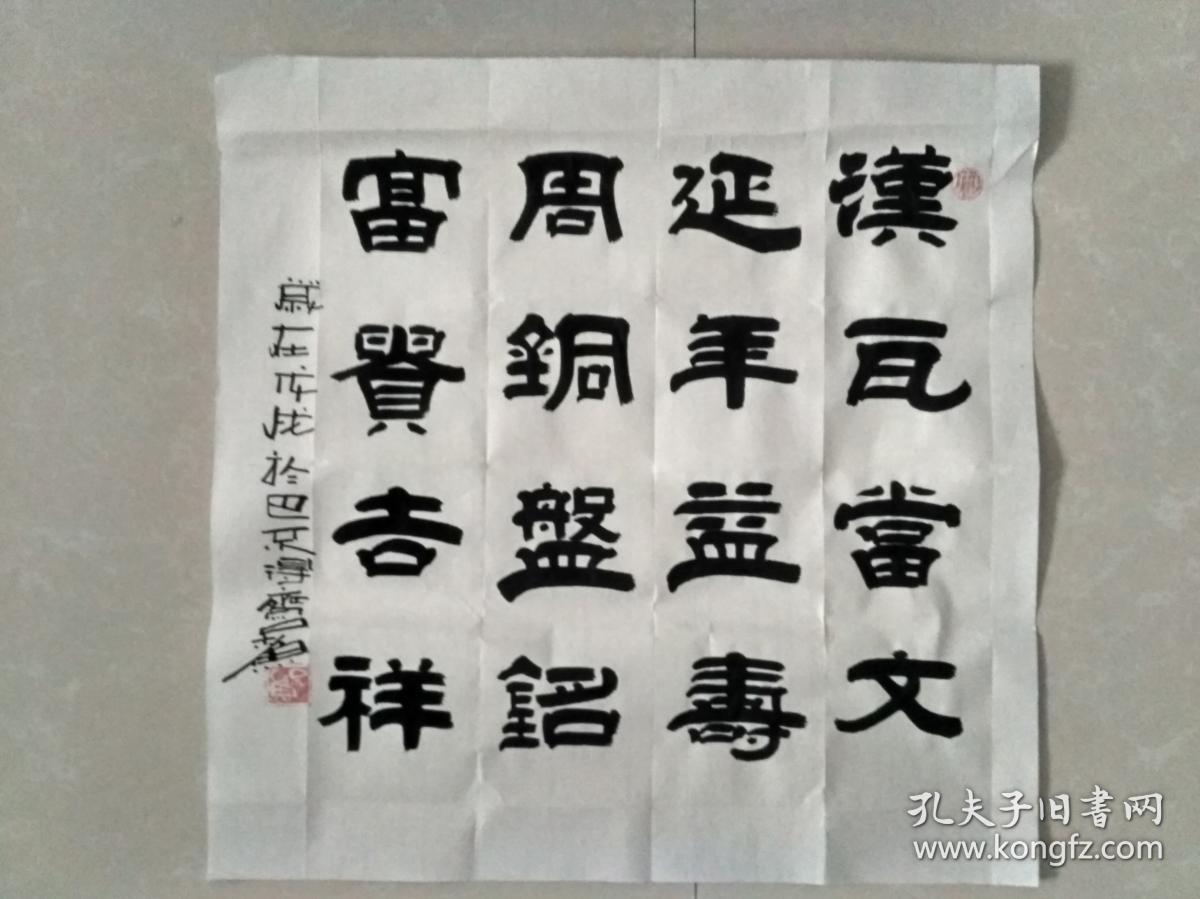 漢瓦當文
延年益壽
周銅盤銘
富貴吉祥
歲在戊戌於巴
孔夫子旧書网
www.kongfz.com